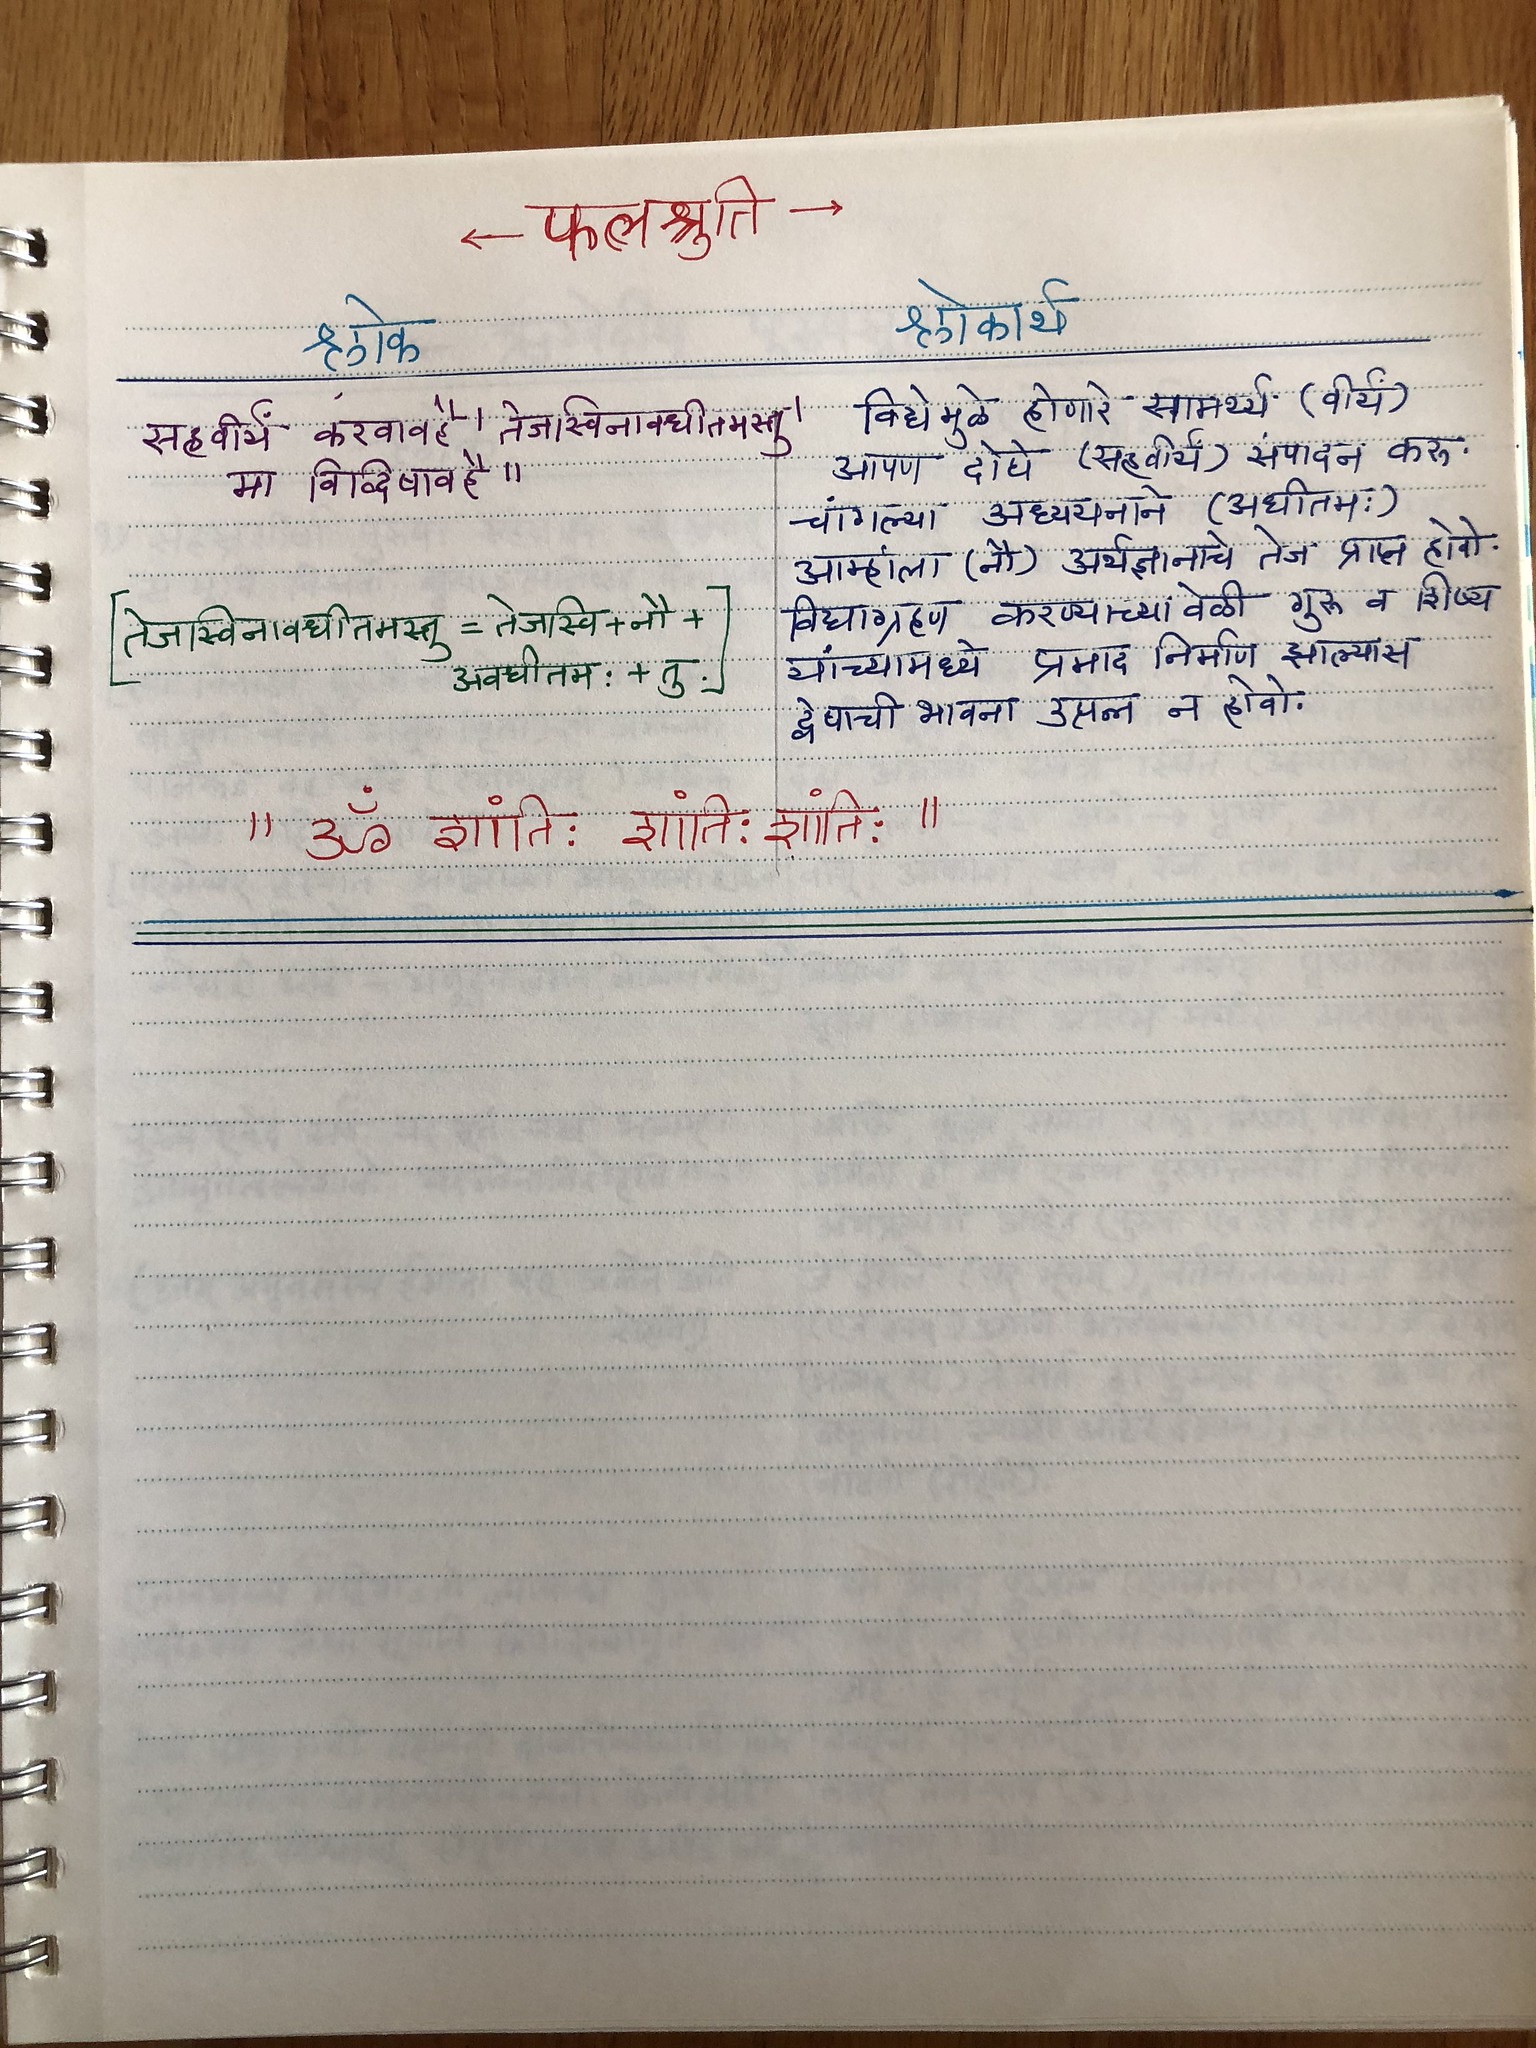 ← फलश्रुति →
श्लोक
श्लोकार्थ
सहवीर्यं करवावहै। तेजस्विनावधीतमस्तु।
मा विद्विषावहै॥
[तेजस्विनावधीतमस्तु = तेजस्वि + नौ +
अवधीतमः + तु.]
विद्येमुळे होणारे सामर्थ्य (वीर्यं)
आपण दोघे (सहवीर्यं) संपादन करू.
चांगल्या अध्ययनाने (अधीतमः)
आम्हांला (नौ) अर्थज्ञानाचे तेज प्राप्त होवो.
विद्याग्रहण करण्याच्यावेळी गुरू व शिष्य
यांच्यामध्ये प्रमाद निर्माण झाल्यास
द्वेषाची भावना उत्पन्न न होवो.
॥ ॐ शांतिः शांतिः शांतिः ॥